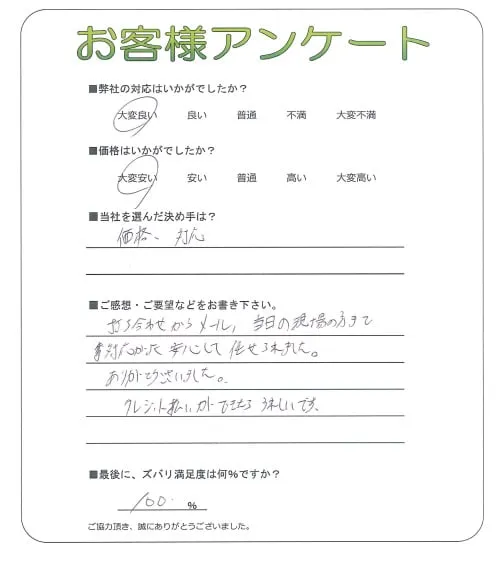 お客様アンケート
■弊社の対応はいかがでしたか？
大変良い 良い 普通 不満 大変不満
■価格はいかがでしたか？
大変安い 安い 普通 高い 大変高い
■当社を選んだ決め手は？
価格、対応
■ご感想・ご要望などをお書き下さい。
打ち合わせからメール, 当日の現場の方まで
対応がよく安心して任せられました。
ありがとうございました。
クレジット払いができたらうれしいです。
■最後に、ズバリ満足度は何%ですか？
100 %
ご協力頂き、誠にありがとうございました。